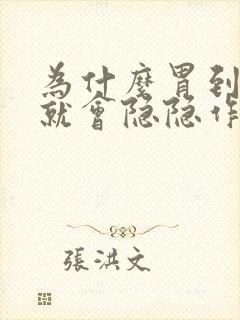 為什麼胃到
就會隐隐作
張洪文